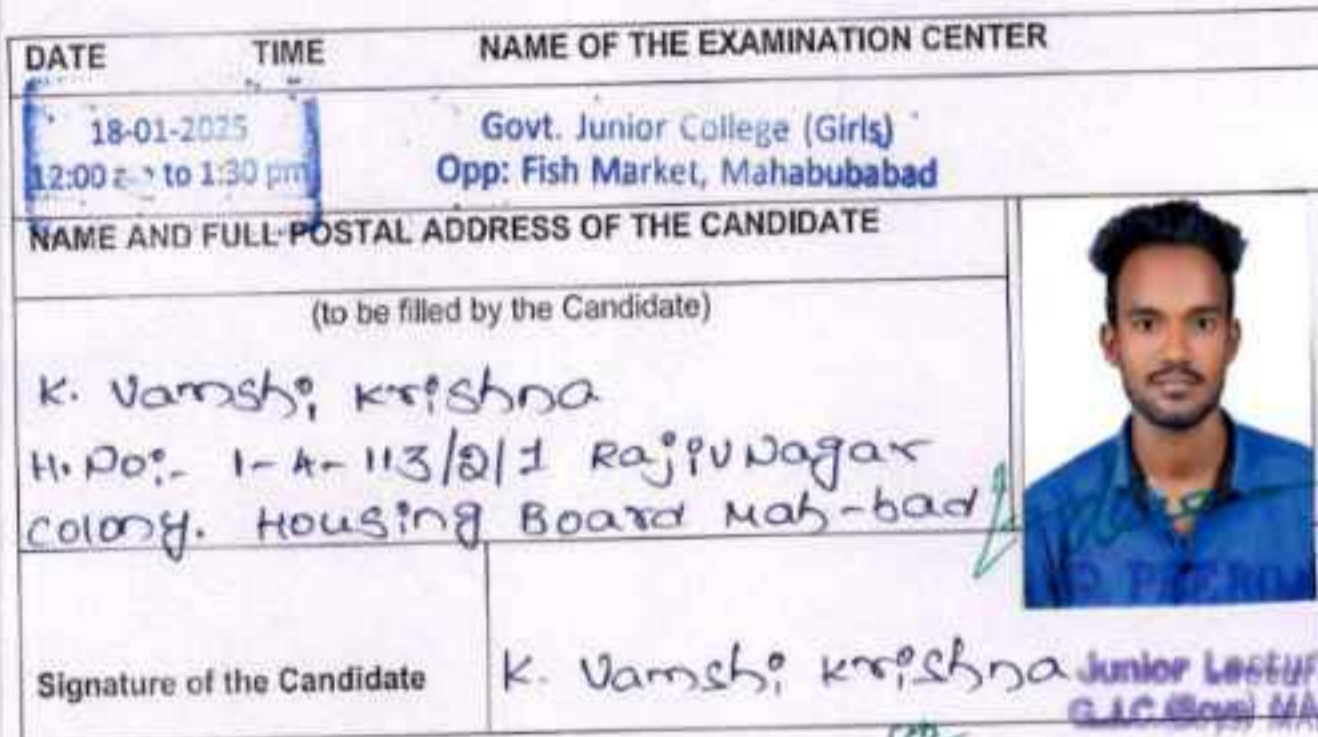 DATE TIME NAME OF THE EXAMINATION CENTER
18-01-2025 Govt. Junior College (Girls)
12:00 to 1:30 pm Opp: Fish Market, Mahabubabad
NAME AND FULL POSTAL ADDRESS OF THE CANDIDATE
(to be filled by the Candidate)
K. Vamshi Krishna
H.No:- 1-A-113/2/1 Rajiv Nagar
colony. Housing Board Mah-bad
Signature of the Candidate K. Vamshi Krishna Junior Lectur
G.J.C (Boys) MA